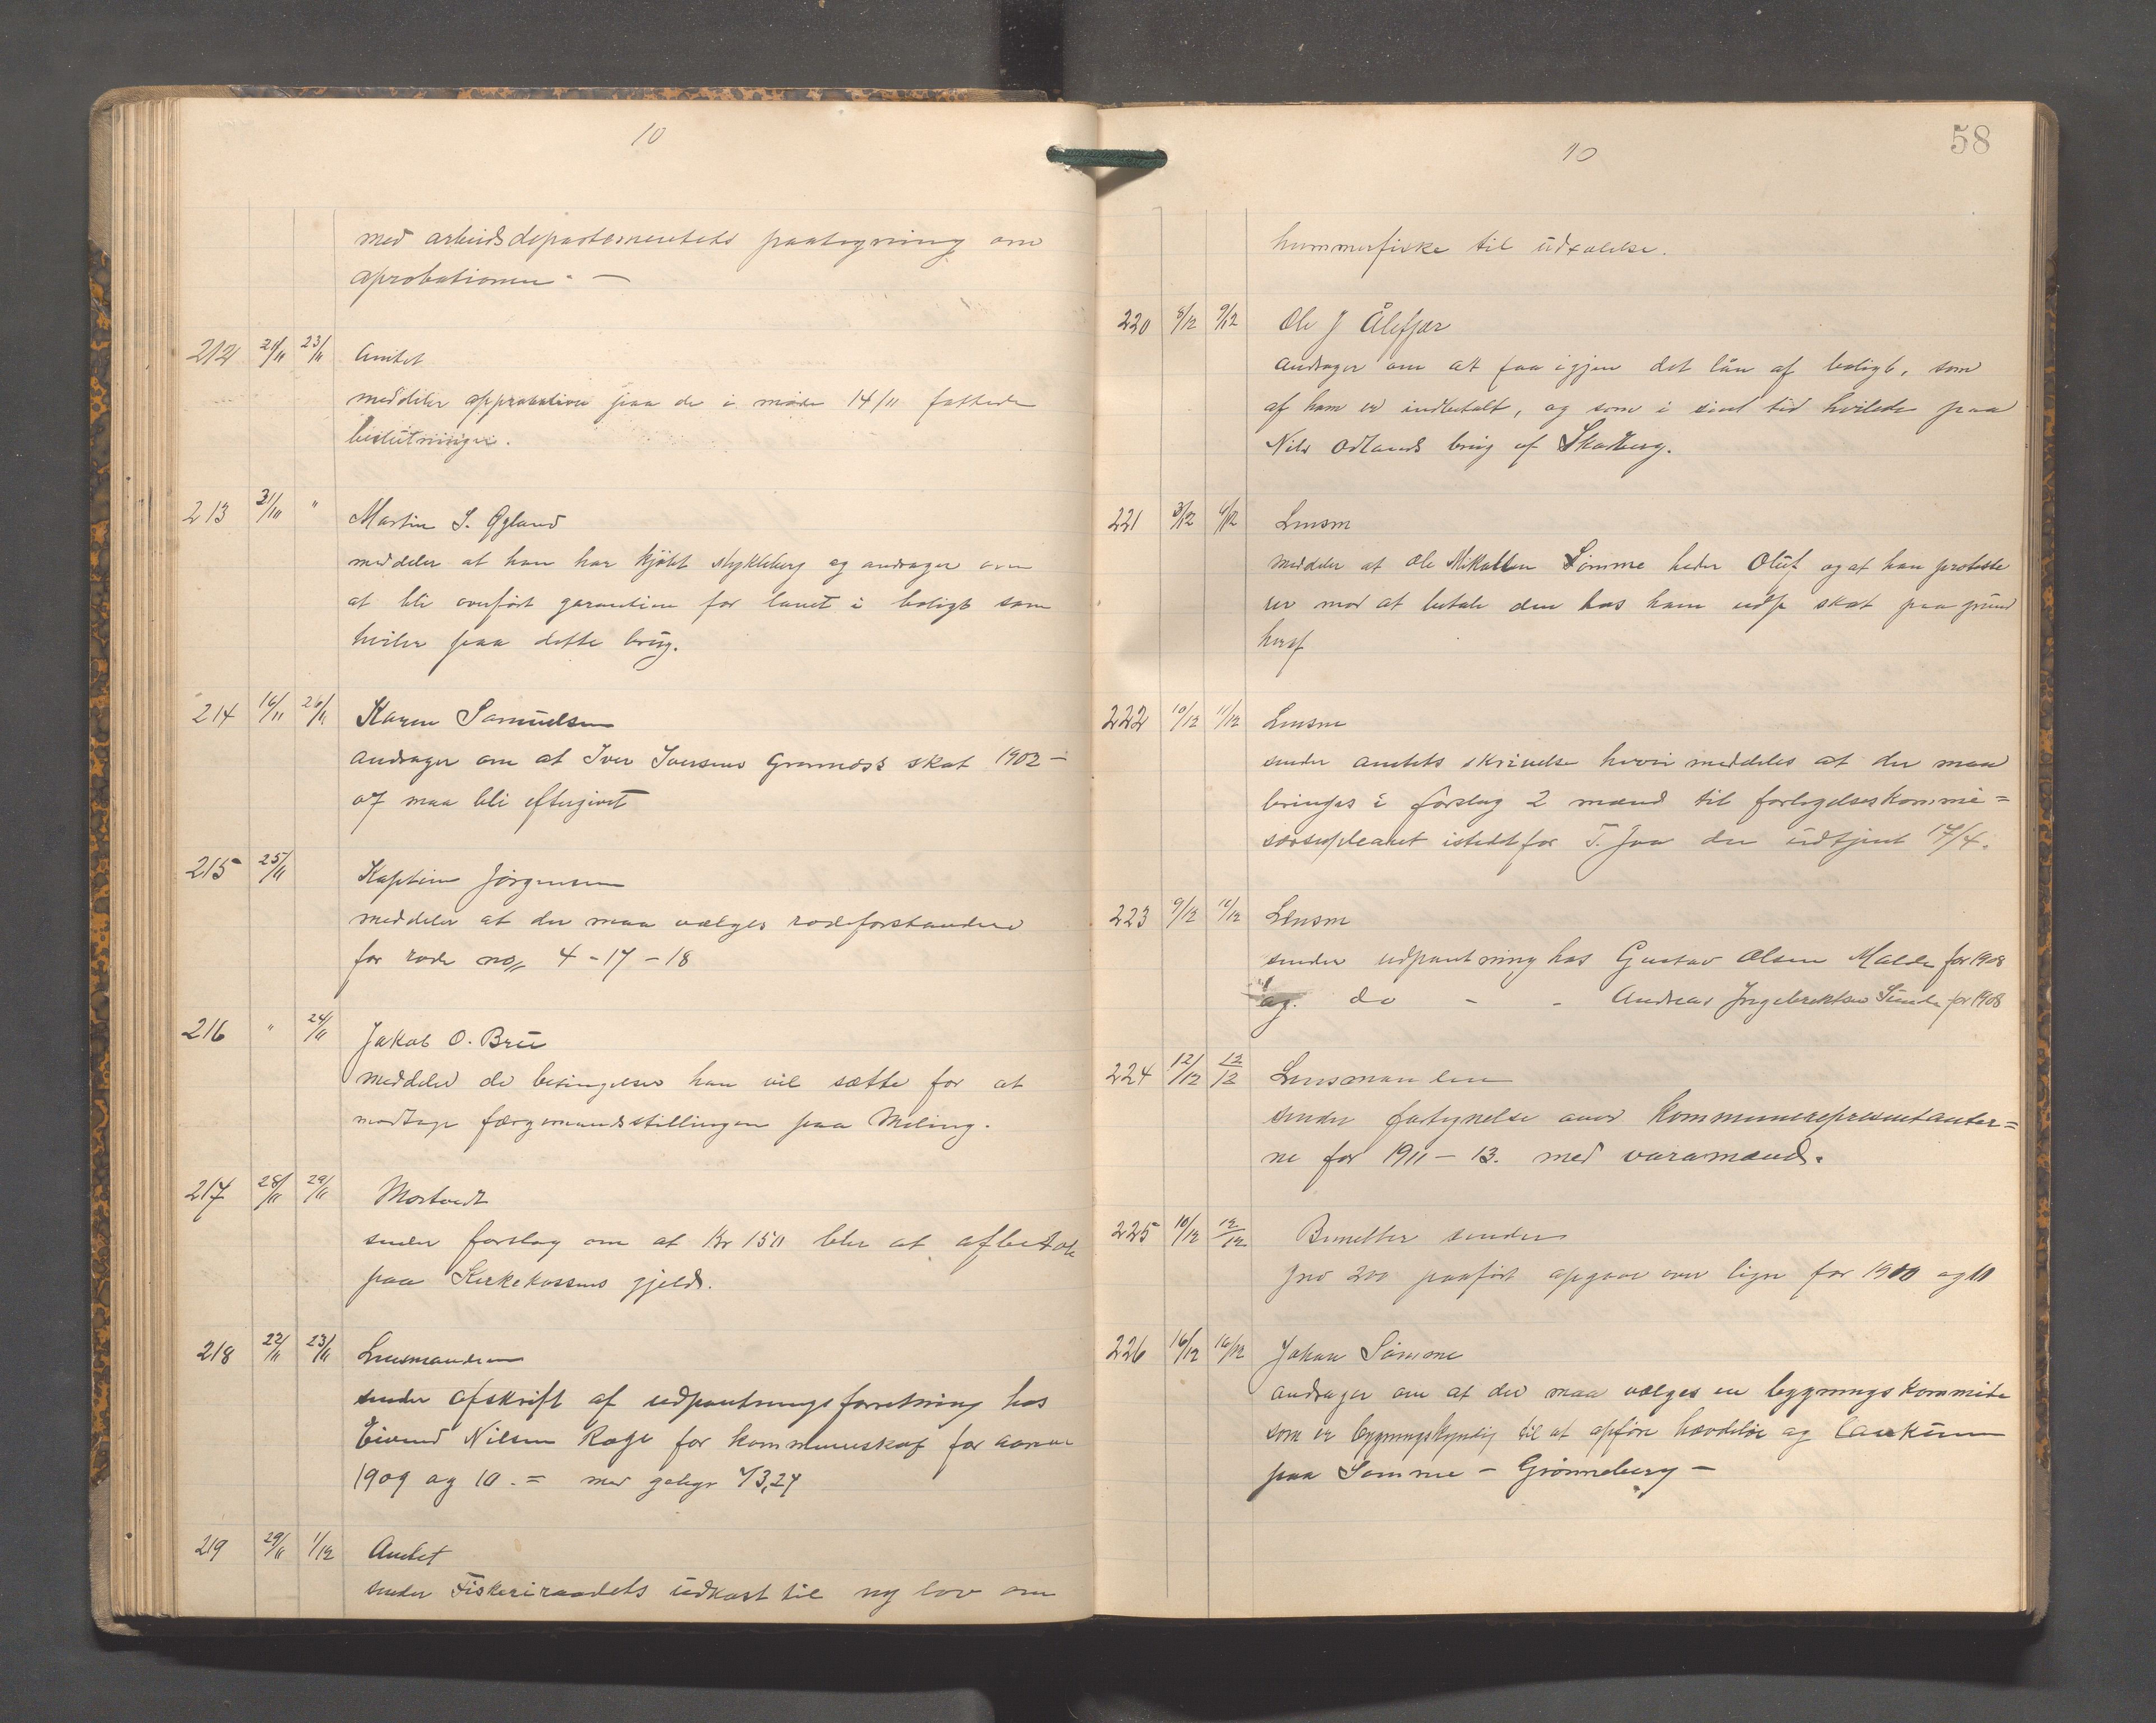 10
med arbeidsdepartementets paategning om
aprobationen. —
212 21/11 23/11 Amtet
meddeler approbation paa de i møde 14/11 fattede
beslutninger.
213 31/10 " Martin S. Øgland
meddeler at han har kjøbt Mykleberg og andrager om
at bli overført garantien for lånet i boligb som
hviler paa dette brug.
214 16/11 26/11 Karen Samuelsen
andrager om at Iver Iversens Grønnæss skat 1902 –
07 maa bli eftergivet
215 25/11 Kaptein Jørgensen
meddeler at der maa vælges rodeforstandere
for rode no 4 – 17 – 18
216 " 24/11 Jakob O. Brü
meddeler de betingelser han vil sætte for at
modtage færgemandsstillingen paa Meling.
217 28/11 29/11 Mostvedt
sender forslag om at Kr 150 blir at afbetale
paa Kirkekassens gjeld.
218 22/11 23/11 Lensmanden
sender afskrift af udpantningsforretning hos
Eivind Nilsen Røge for kommuneskat for aarene
1909 og 10. = med gebyr 73,24
219 29/11 1/12 Amtet
sender Fiskeriraadets üdkast til ny lov om
10
58
hummerfiske til üdtalelse.
220 8/12 9/12 Ole J Ålefjær
andrager om at faa igjen det lån af boligb. som
af ham er indbetalt, og som i sind tid hvilede paa
Nils Ødlands brug af Skadberg.
221 3/12 6/12 Lensm
meddeler at Ole Mikalsen Sømme heder Olüf og at han proteste
rer mod at betale den hos ham udp skat paa gründ
heraf
222 10/12 11/12 Lensm
sender amtets skrivelse hvori meddeles at der maa
bringes i forslag 2 mænd til forligelseskommi=
istedtfor T. Joa der üdtjent 17/4.
223 9/12 10/12 Lensm
sender udpantning hos Gustav Olsen Malde for 1908
og do – - Andreas Ingebrektsen Sünde for 1908
224 12/12 12/12 Lensmanden
sender fortegnelse over Kommunerepresentanter=
ne for 1911 – 13. med varamænd.
225 10/12 12/12 sender
Jno 200 paaført opgave over lign for 1900 og 10
226 16/12 16/12 Johan Sømme
andrager om at der maa vælges en bygningskommite
som er bygningskyndig til at opføre og
paa Sømme – Grønneberg –